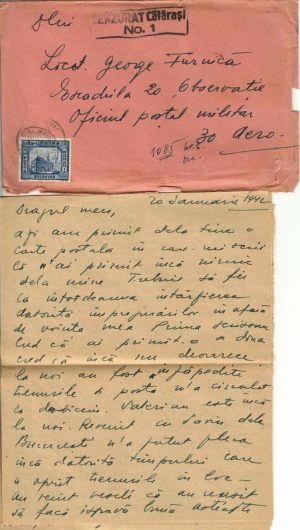 CENZURAT Călărași
No. 1
Dlui
Locot. George Furnică
Escadrila 20 Observație
Oficiul poștal militar
30 Aero.
20 Ianuarie 1942
Dragul meu,
azi am primit dela tine o
carte postala in care mi scrii
că n'ai primit încă nimic
dela mine Trebuie să fie
ca întotdeauna întârzierea
datorită împrejurărilor în afară
de voința mea Prima scrisoare
cred că ai primit-o a doua
cred că încă nu deoarece
la noi au fost înzăpedite
trenurile și posta n'a circulat
ca deobicei. Valerian este încă
la noi. Revenit dela
București n'a putut pleca
încă datorită timpului care
a oprit trenurile in loc
au venit veseli că au reusit
să facă ispravă bună